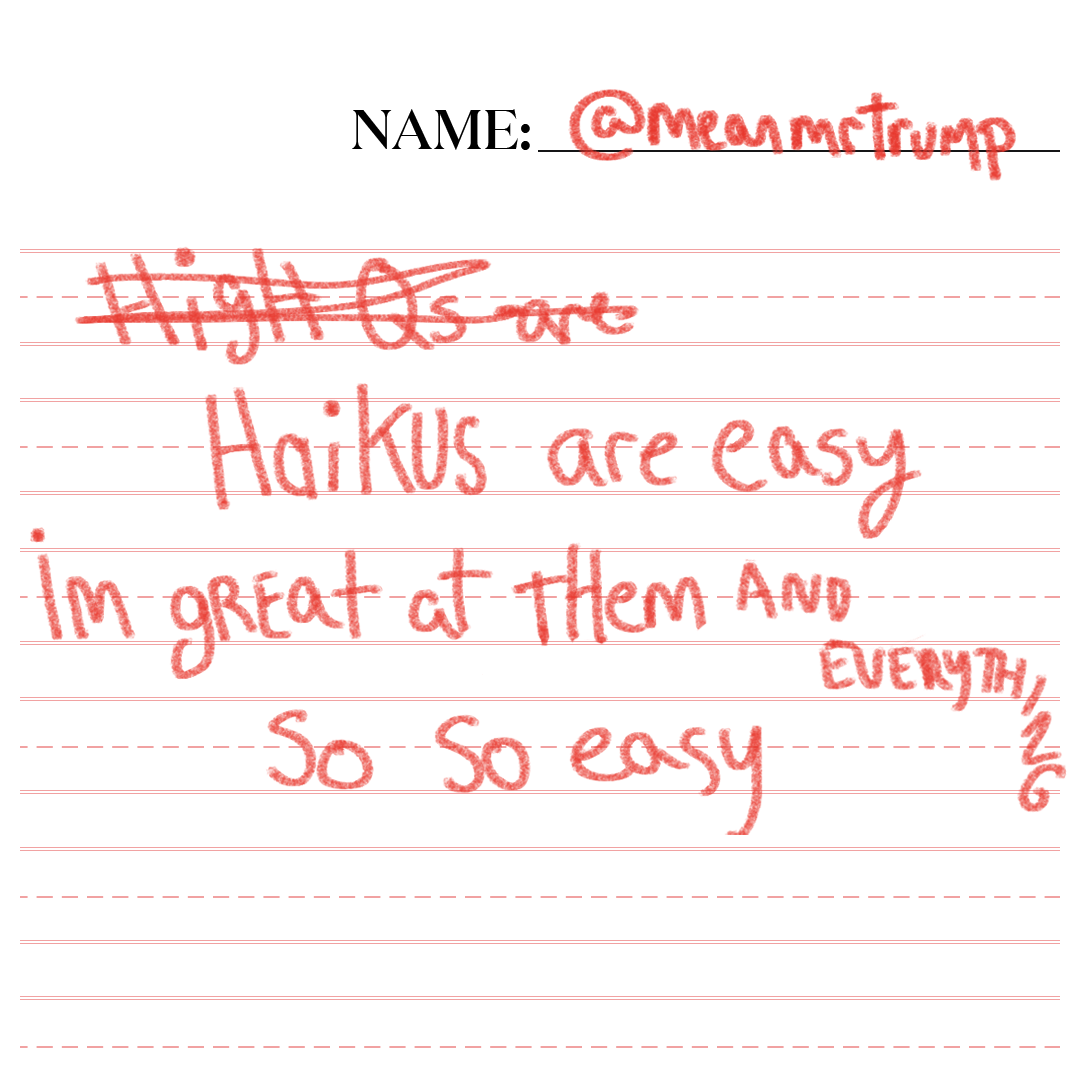 NAME: @meanmrtrump
HigH Qs are
HaiKUs are easy
im gREat at tHem AND
EVERYTHING
So So easy